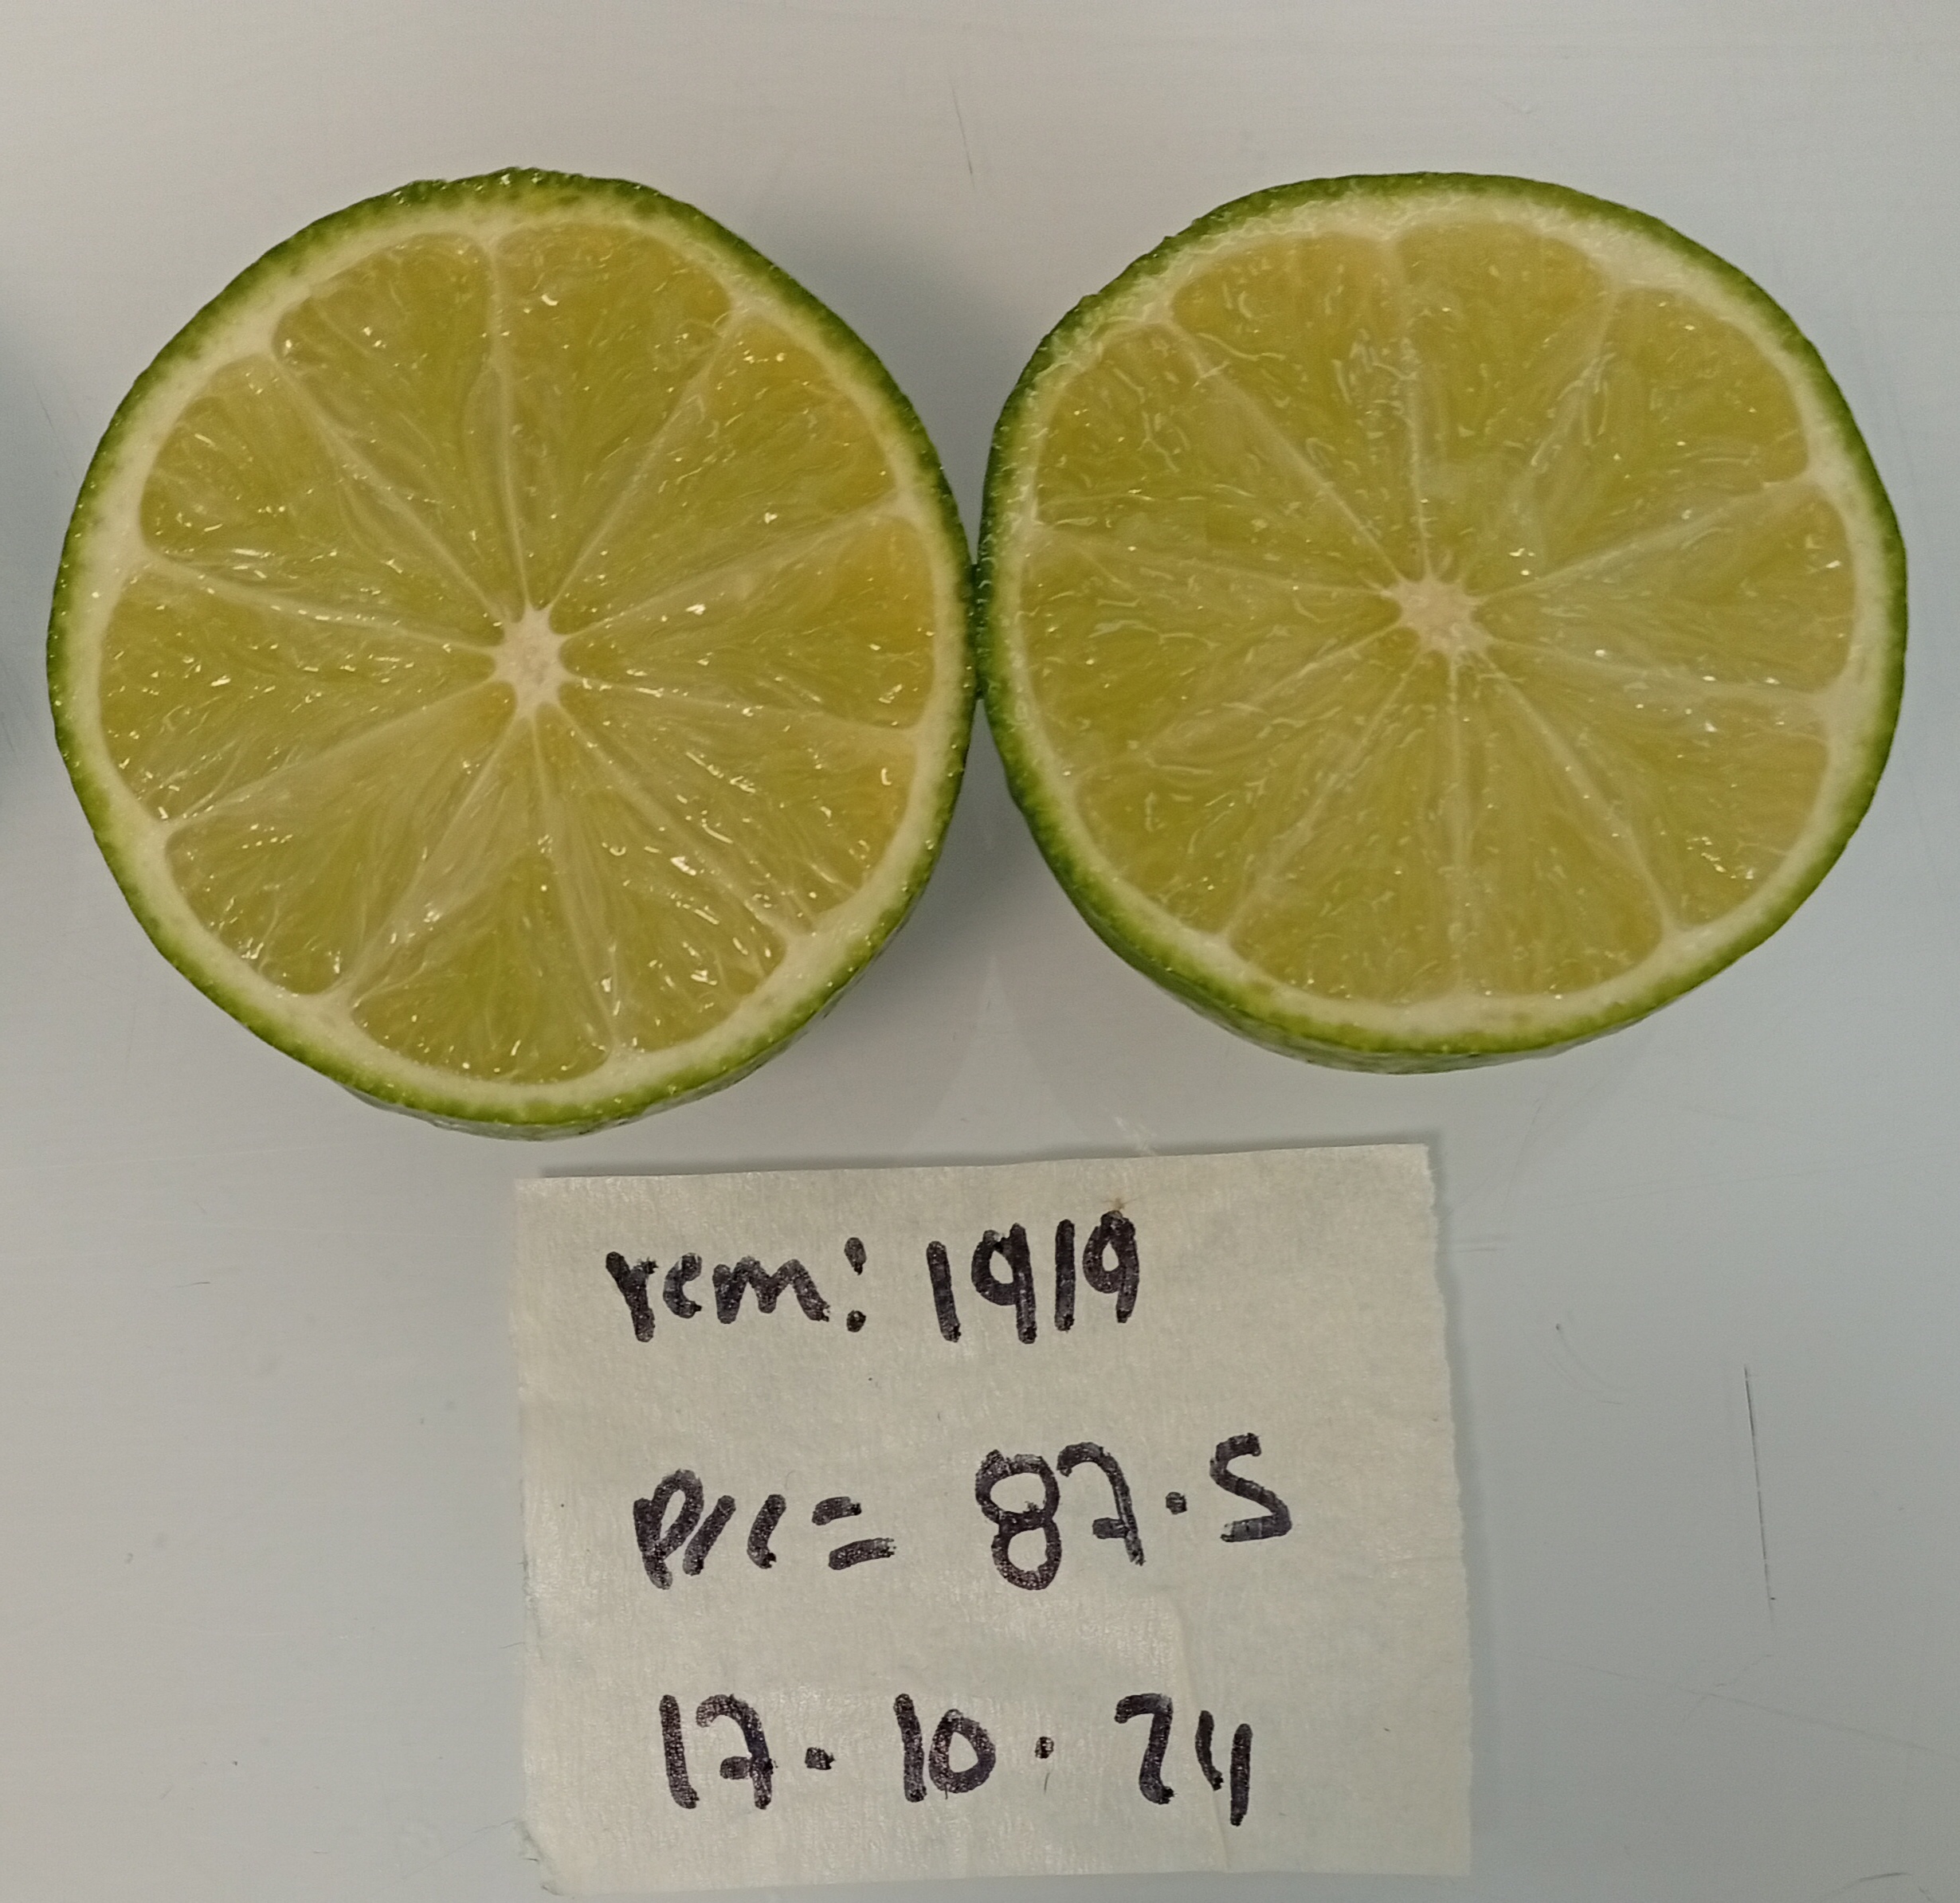 rem: 1919
P/C= 87.5
17.10.24